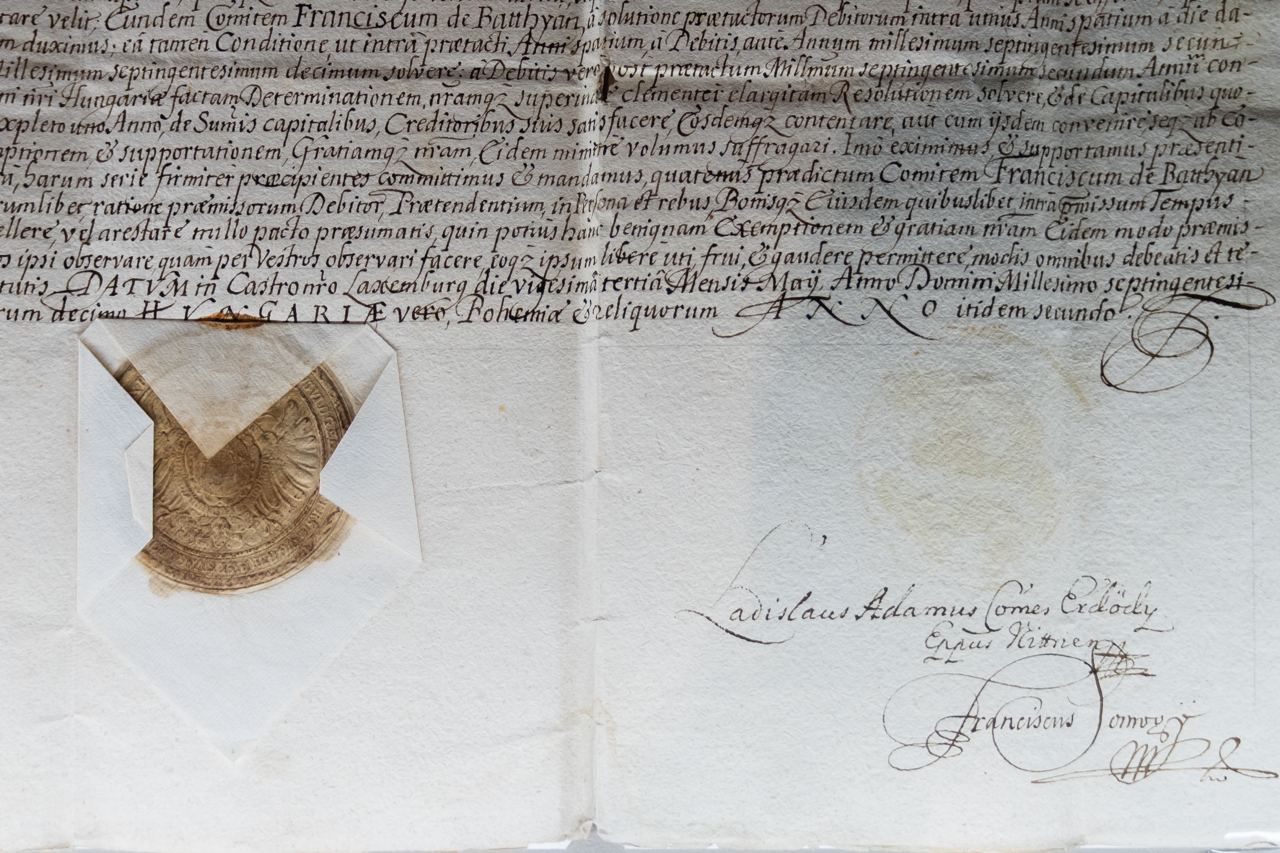 tare velit, Eundem Comitem Franciscum de Batthyan à solutione prætactorum Debitorum intra unius Anni spatium à die da-
m duximus; eâ tamen Conditione, ut intrà prætacti Anni spatium, à Debitis, ante Annum millesimum septingentesimum secun-
Millesimum septingentesimum decimum solvere; à Debitis verò post prætactum Millmum septingentesimum secundum Annu con-
ni nri Hungariæ factam Determinationem, nramqz superinde clementer elargitam Resolutionem solvere, & de Capitalibus quo-
expleto uno Anno, de Sumis capitalibus, Creditoribus suis satisfacere, Eosdemqz contentare, aut cum ijsdem convenire, seqz ab eo-
ptionem & supportationem, Gratiamqz nram, Eidem minimè volumus suffragari. Imò eximimus & supportamus præsenti-
a, harum serie firmiter præcipientes committimus & mandamus, quatenus prædictum Comitem Franciscum de Batthyan
rumlibet ratione præmissorum Debitor, Prætendentium, in Persona et rebus Bonisqz Eiusdem quibuslibet intra præmissum Tempus
ellere, vel arestare nullo pacto præsumatis, quin potius hanc benignam Exemptionem & gratiam nram Eidem modo præmis-
ipsi observare quam per Vestros observari facere, eoqz ipsum liberè uti, frui, & gaudere permittere, modis omnibus debeatis et te-
DATVM in Castro nro Laxemburg die vigesimâ tertiâ Mensis Maÿ, Anno Domini Millesimo septingentesi-
rum decimo HVNGARIÆ verò, Bohemiæ & reliquorum ANNO itidem secundo.
Ladislaus Adamus Comes Erdödy
Eppus Nittrien
Franciscus Somogÿ